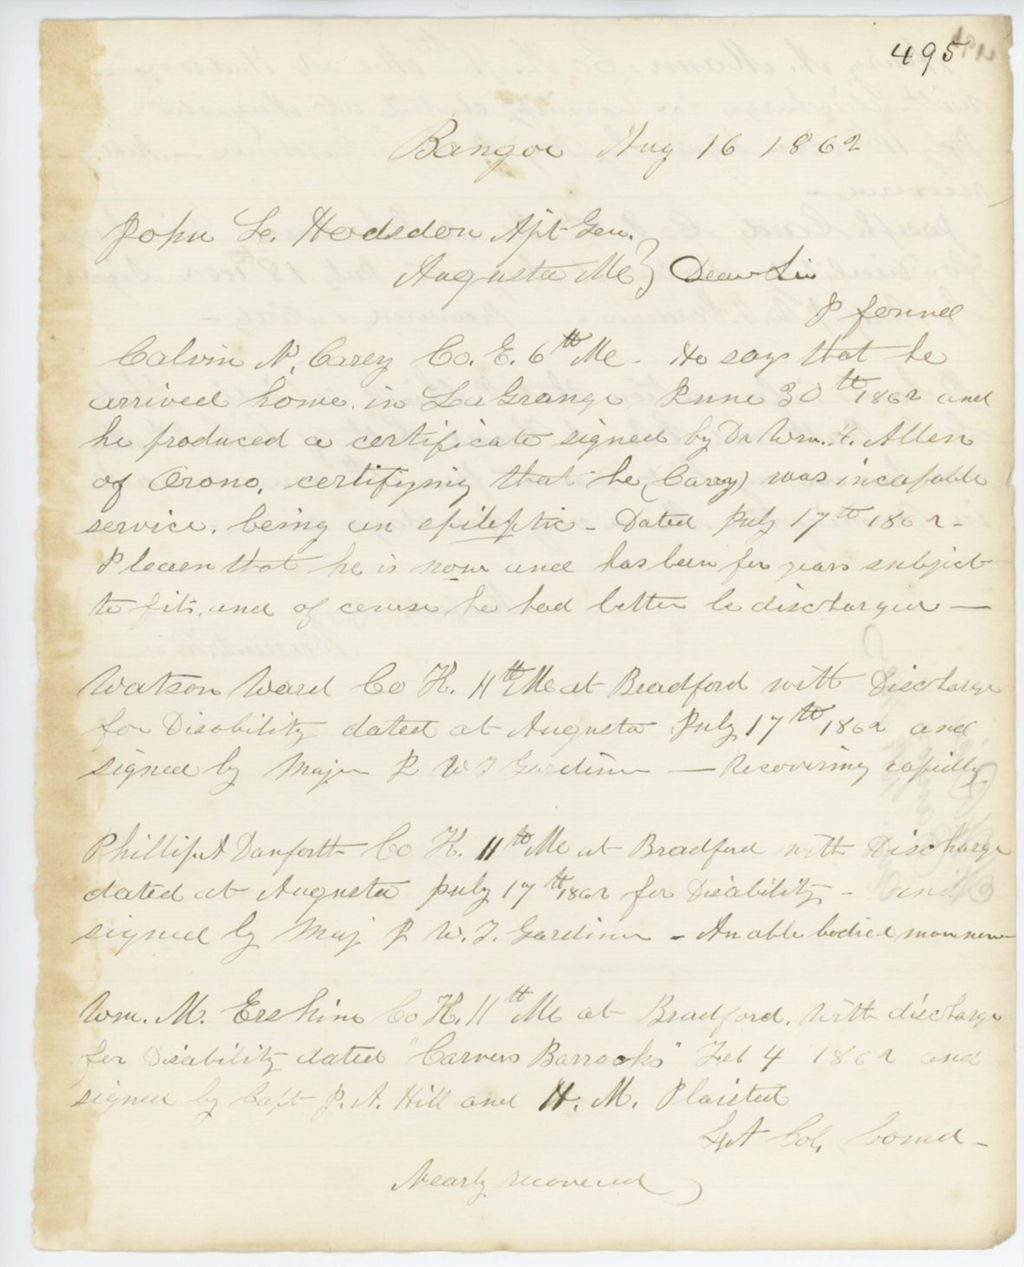 495
Bangor Aug 16 1862
John L. Hodsdon Ajt Gen.
Augusta Me } Dear Sir
I found
Calvin N. Carey Co. E. 6th Me - He says that he
arrived home in LaGrange June 30th 1862 and
he produced a certificate signed by Dr Wm. H. Allen
of Orono, certifying that he (Carey) was incapable
service, being an epileptic - Dated July 17th 1862 -
I learn that he is now and has been for years subject
to fits, and of course he had better be discharged —
Watson Ward Co K. 11th Me at Bradford with Discharge
for Disability dated at Augusta July 17th 1862 and
signed by Major J W T Gardiner — Recovering rapidly
Phillip A Danforth Co K. 11th Me at Bradford with Discharge
dated at Augusta July 17th 1862 for Disability - and
signed by Maj J W. T. Gardiner - An able bodied man now -
Wm. M. Erskine Co K. 11th Me at Bradford, with discharge
for Disability dated "Carvers Barracks" Feb 4 1862 and
signed by Capt J. A. Hill and H. M. Plaisted
Lt Col. Comd -
Nearly recovered